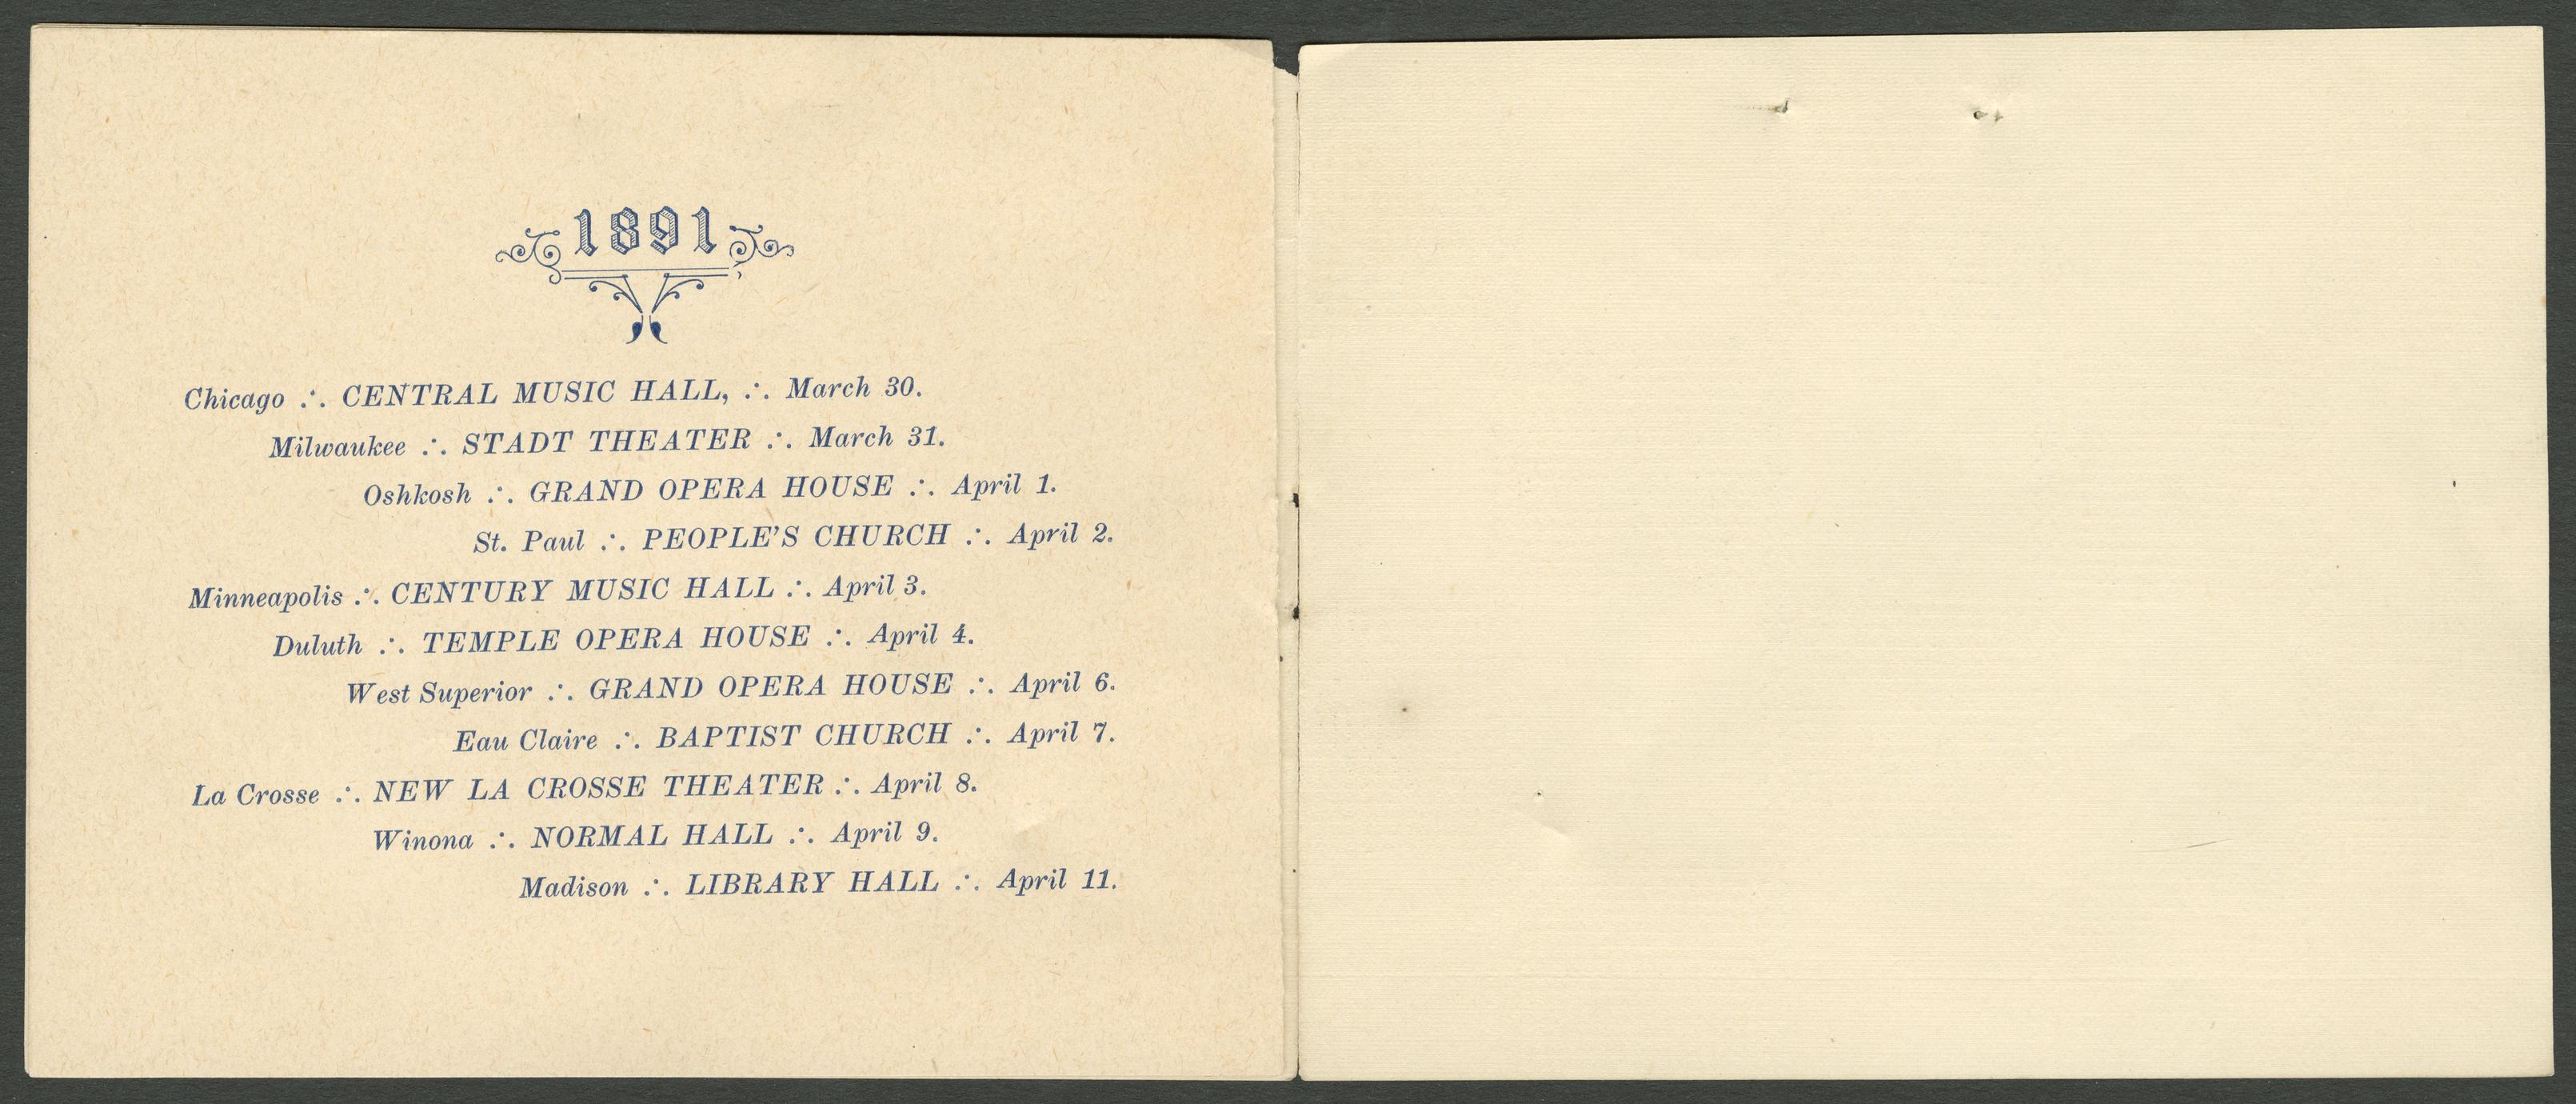 1891
Chicago ∴ CENTRAL MUSIC HALL, ∴ March 30.
Milwaukee ∴ STADT THEATER ∴ March 31.
Oshkosh ∴ GRAND OPERA HOUSE ∴ April 1.
St. Paul ∴ PEOPLE'S CHURCH ∴ April 2.
Minneapolis ∴ CENTURY MUSIC HALL ∴ April 3.
Duluth ∴ TEMPLE OPERA HOUSE ∴ April 4.
West Superior ∴ GRAND OPERA HOUSE ∴ April 6.
Eau Claire ∴ BAPTIST CHURCH ∴ April 7.
La Crosse ∴ NEW LA CROSSE THEATER ∴ April 8.
Winona ∴ NORMAL HALL ∴ April 9.
Madison ∴ LIBRARY HALL ∴ April 11.